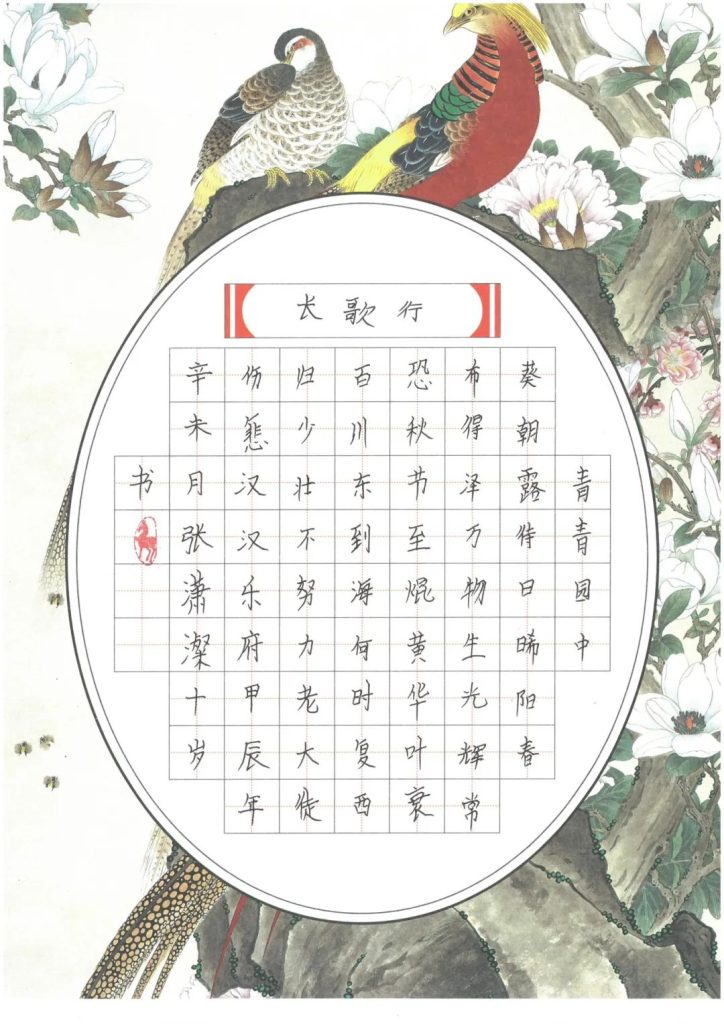 长歌行
青青园中
葵朝露待日晞阳春
布得泽万物生光辉常
恐秋节至焜黄华叶衰
百川东到海何时复西
归少壮不努力老大徒
伤悲汉汉乐府甲辰年
辛未月张潇澯十岁
书